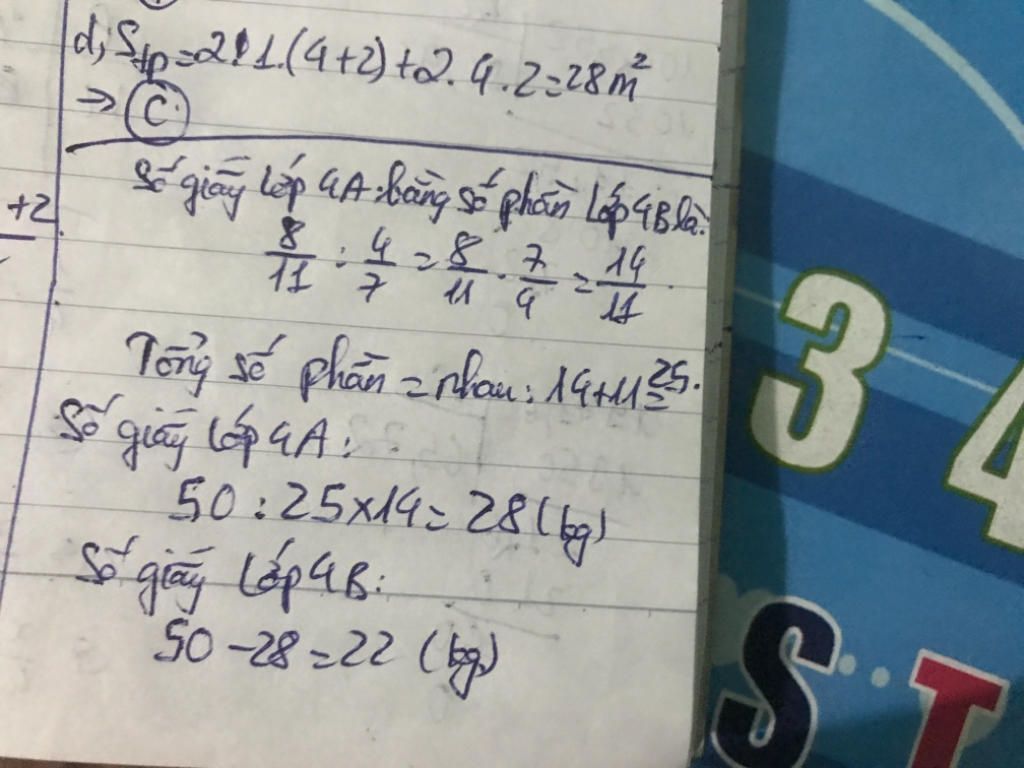 d, Stp = 2.1.(4+2)+2.4.2=28m²
=> C.
Số giấy lớp 4A bằng số phần lớp 4B là:
+2
8/11 : 4/7 = 8/11 . 7/4 = 14/11
Tổng số phần = nhau: 14+11=25.
Số giấy lớp 4A:
50 : 25 x 14 = 28 (kg)
Số giấy lớp 4B:
50 - 28 = 22 (kg)
3
4
S
T